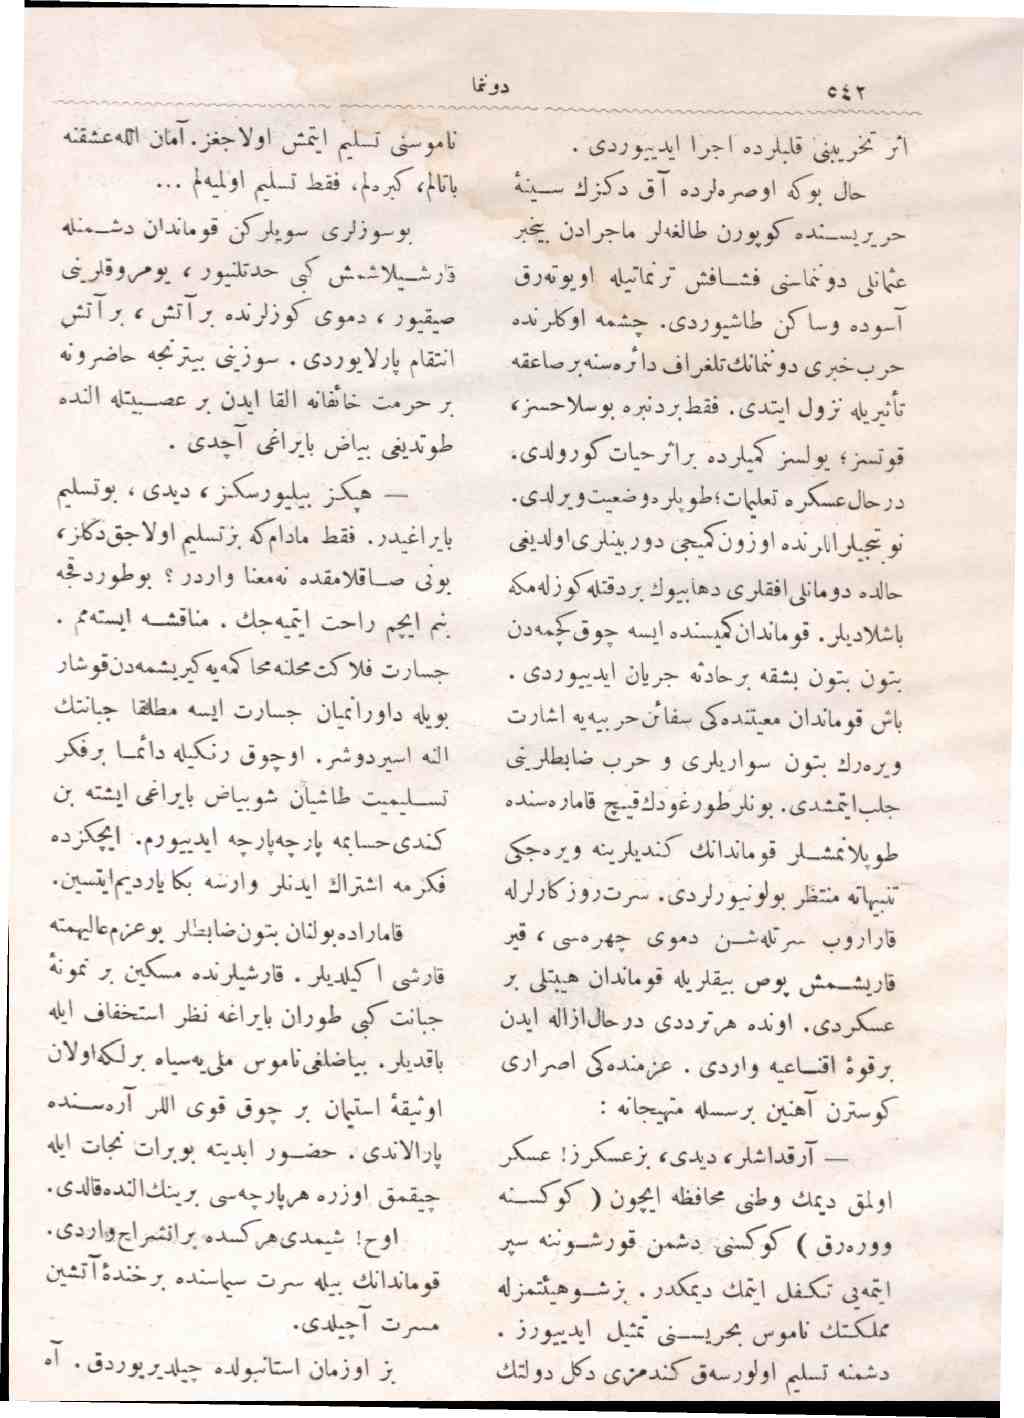 ٥٤٢
دوننما
اثر تخریبنی قلبلرده اجرا ایدییوردی .
حال بوکه اوصره‌لرده آق دکزك سینۀ
حریریسنده کوپورن طالغه‌لر ماجرادن بیخبر
عثمانلی دوننماسنی فشافش ترنماتیله اویوته‌رق
آسوده وساکن طاشیوردی. چشمه اوکلرنده
حرب خبری دوننمانك تلغراف دائره‌سنه بر صاعقه
تأثیریله نزول ایتدی. فقط بردنبره بوسلاحسز،
قوتسز ؛ یولسز کمیلرده بر اثر حیات کورولدی.
درحال عسکره تعلیمات ؛ طوپلره وضعیت ویرلدی.
نوبتجیلر اللرنده اوزون کمیجی دوربینلری اولدیغی
حالده دومانلی افقلری دها بیوك بر دقتله کوزله‌مکه
باشلادیلر. قوماندان کمیسنده ایسه چوق کچمه‌دن
بتون بتون بشقه بر حادثه جریان ایدییوردی .
باش قوماندان معیتنده‌کی سفائن حربییه‌یه اشارت
ویره‌رك بتون سواریلری و حرب ضابطلرینی
جلب ایتمشدی. بونلر طورغودك قیچ قاماره‌سنده
طوپلانمشلر قوماندانك کندیلرینه ویره‌جکی
تنبیهاته منتظر بولونیورلردی. سرت روزکارلرله
قاراروب سرتله‌شن دموی چهره‌سی ، قیر
قاریشمش پوص بیقلریله قوماندان هیبتلی بر
عسکردی. اونده هر ترددی درحال ازاله ایدن
بر قوۀ اقناعیه واردی . عزمنده‌کی اصراری
کوسترن آهنین بر سسله متهیجانه :
— آرقداشلر، دیدی، بز عسکرز! عسکر
اولمق دیمك وطنی محافظه ایچون ( کوکسنه
ووره‌رق ) کوکسنی دشمن قورشوننه سپر
ایتمه‌یی تکفل ایتمك دیمکدر . بز شو هیئتمزله
مملکتك ناموس بحریسنی تمثیل ایدییورز .
دشمنه تسلیم اولورسه‌ق کندمزی دکل دولتك
ناموسنی تسلیم ایتمش اولاجغز. آمان الله عشقنه
باتالم، کبره‌لم، فقط تسلیم اولمیه‌لم ...
بوسوزلری سویلرکن قوماندان دشمنله
قارشیلاشمش کبی حدتلنیور ، یومروقلرینی
صیقیور ، دموی کوزلرنده بر آتش ، بر آتش
انتقام پارلایوردی . سوزینی بیترنجه حاضرونه
بر حرمت خائفانه القا ایدن بر عصبیتله النده
طوتدیغی بیاض بایراغی آچدی .
— هپکز بیلیورسکز ، دیدی ، بو تسلیم
بایراغیدر. فقط مادام‌که بز تسلیم اولاجق دکلز،
بونی صاقلامقده نه معنا واردر ؟ بو طوردقجه
بنم ایچم راحت ایتمیه‌جك . مناقشه ایسته‌مم .
جسارت فلاکت محلنه محاکمه‌یه کیریشمه‌دن قوشار
بویله داورانمیان جسارت ایسه مطلقا جبانتك
النه اسیر دوشر. اوچوق رنکیله دائما بر فکر
تسلیمیت طاشیان شو بیاض بایراغی ایشته بن
کندی حسابمه پارچه پارچه ایدییورم. ایچکزده
فکرمه اشتراك ایدنلر وارسه بکا یاردیم ایتسین.
قاماراده بولنان بتون ضابطلر بو عزم عالیهمته
قارشی اکیلدیلر . قارشیلرنده مسکین بر نمونۀ
جبانت کبی طوران بایراغه نظر استخفاف ایله
باقدیلر. بیاضلغی ناموس ملی‌یه سیاه بر لکه اولان
او وثیقۀ استیمان بر چوق قوی اللر آره‌سنده
پارالاندی . حضور ابدیته بو برات نجات ایله
چیقمق اوزره هر پارچه‌سی برینك النده قالدی.
اوح ! شیمدی هرکسده بر انشراح واردی.
قوماندانك بیله سرت سیماسنده بر خندۀ آتشین
مسرت آچیلدی.
بز اوزمان استانبولده چیلدیریوردق . آه